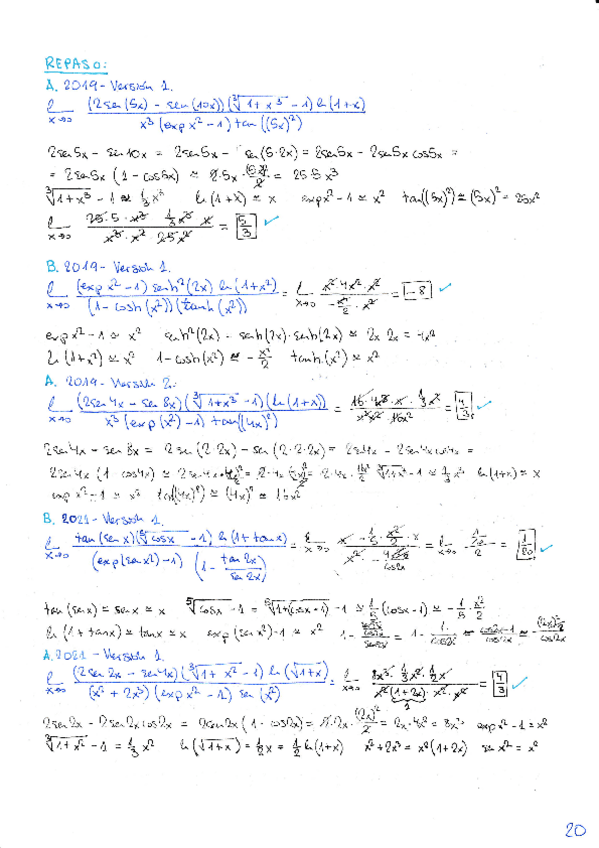 REPASO:
A. 2019 - Versión 1.
ℓ x→0 (2sen(5x) - sen(10x)) (∛(1+x³) - 1) ln(1+x) / x³ (exp x² - 1) tan((5x)²)
2sen5x - sen10x = 2sen5x - sen(5·2x) = 2sen5x - 2sen5x cos5x =
= 2sen5x (1 - cos5x) ≃ 2·5x · (5x)²/2 = 25·5x³
∛(1+x³) - 1 ≃ ⅓x³ ln(1+x) ≃ x exp x² - 1 ≃ x² tan((5x)²) ≃ (5x)² = 25x²
ℓ x→0 25·5·x³ · ⅓x³ · x / x³ · x² · 25x² = 5/3 ✓
B. 2019 - Versión 1.
ℓ x→0 (exp x² - 1) senh²(2x) ln(1+x²) / (1 - cosh(x²)) (tanh(x²)) = ℓ x→0 x² · 4x² · x² / -x²/2 · x² = -8 ✓
exp x² - 1 ≃ x² senh²(2x) = senh(2x)·senh(2x) ≃ 2x·2x = 4x²
ln(1+x²) ≃ x² 1 - cosh(x²) ≃ -x²/2 tanh(x²) ≃ x²
A. 2019 - Versión 2.
ℓ x→0 (2sen4x - sen8x) (∛(1+x³) - 1) (ln(1+x)) / x³ (exp(x²) - 1) tan((4x)²) = 16·4x³ · x · ⅓x³ / x³x² 16x² = 4/3 ✓
2sen4x - sen8x = 2sen(2·2x) - sen(2·2·2x) = 2sen4x - 2sen4x cos4x =
2sen4x (1 - cos4x) ≃ 2sen4x · = 2·4x · = 2·4x · ∛(1+x³) - 1 ≃ ⅓x³ ln(1+x) ≃ x
exp x² - 1 ≃ x² tan((4x)²) ≃ (4x)² ≃ 16x²
B. 2021 - Versión 1.
ℓ x→0 tan(sen x) (⁵√cosx - 1) ln(1+tanx) / (exp(senx²) - 1) (1 - tan2x/sen2x) = ℓ x→0 = ℓ x→0 = ✓
tan(senx) ≃ senx ≃ x ⁵√cosx - 1 = ⁵√(1+(cosx-1)) - 1 ≃ 1/5 (cosx - 1) ≃ -1/5 · x²/2
ln(1+tanx) ≃ tanx ≃ x exp(senx²) - 1 ≃ x² 1 - = 1 - 1/cos2x ≃ cos2x-1/cos2x ≃
A. 2021 - Versión 1.
ℓ x→0 (2sen2x - sen4x) (∛(1+x²) - 1) ln(√(1+x)) / (x² + 2x³) (exp x² - 1) sen(x²) = ℓ x→0 8x³ · ⅓x² · ½x / x²(1+2x) · x² · x² = 4/3 ✓
2sen2x - 2sen2x cos2x = 2sen2x (1 - cos2x) = 2·2x · (2x)²/2 = 2x·4x² = 8x³ exp x² - 1 = x²
∛(1+x²) - 1 = ⅓x² ln(√(1+x)) = ½x = ½ ln(1+x) x² + 2x³ = x²(1+2x) sen x² = x²
20